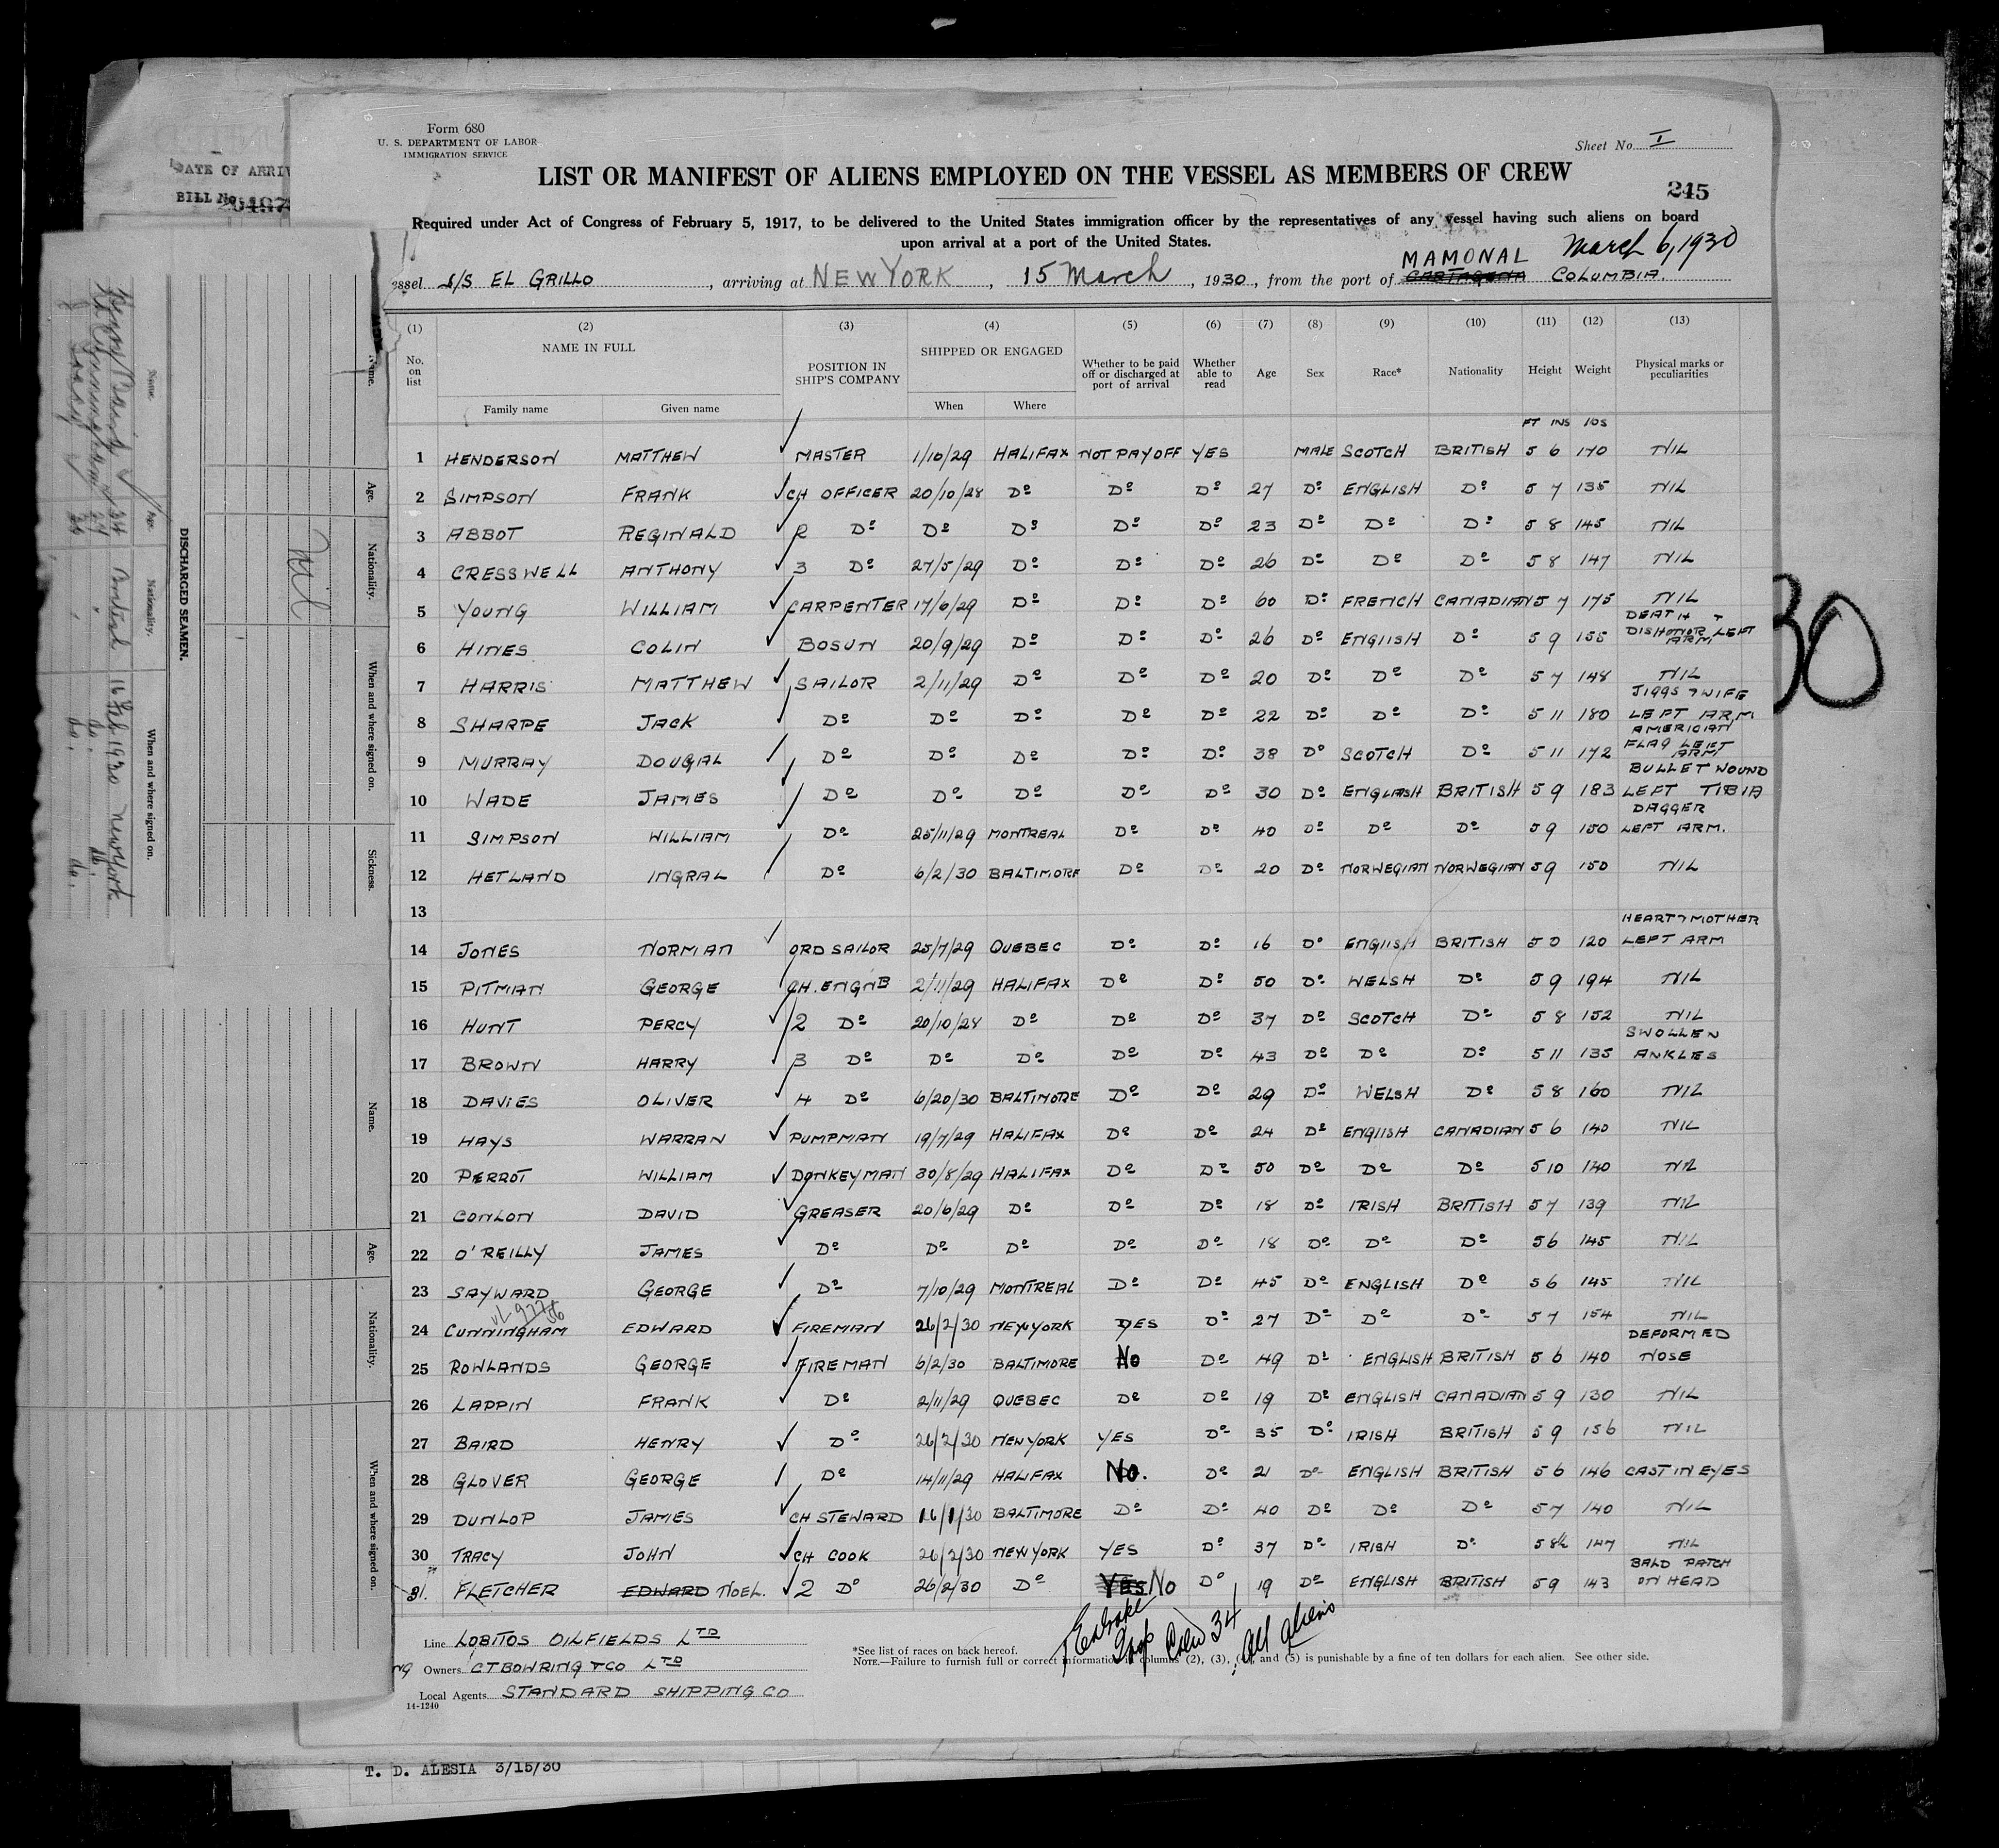 Form 680
U. S. DEPARTMENT OF LABOR
IMMIGRATION SERVICE
Sheet No. I
LIST OR MANIFEST OF ALIENS EMPLOYED ON THE VESSEL AS MEMBERS OF CREW
245
Required under Act of Congress of February 5, 1917, to be delivered to the United States immigration officer by the representatives of any vessel having such aliens on board
upon arrival at a port of the United States.
MAMONAL March 6, 1930
essel S/S EL GRILLO, arriving at NEW YORK, 15 March, 1930, from the port of CARTAGENA COLUMBIA.
(1) (2) (3) (4) (5) (6) (7) (8) (9) (10) (11) (12) (13)
No. on list NAME IN FULL POSITION IN SHIP'S COMPANY SHIPPED OR ENGAGED Whether to be paid off or discharged at port of arrival Whether able to read Age Sex Race* Nationality Height Weight Physical marks or peculiarities
Family name Given name When Where
FT INS lbs
1 HENDERSON MATTHEW MASTER 1/10/29 HALIFAX NOT PAY OFF YES MALE SCOTCH BRITISH 5 6 170 NIL
2 SIMPSON FRANK CH OFFICER 20/10/28 Do Do Do 27 Do ENGLISH Do 5 7 135 NIL
3 ABBOT REGINALD 2 Do Do Do Do Do 23 Do Do Do 5 8 145 NIL
4 CRESSWELL ANTHONY 3 Do 27/5/29 Do Do Do 26 Do Do Do 5 8 147 NIL
5 YOUNG WILLIAM CARPENTER 17/6/29 Do Do Do 60 Do FRENCH CANADIAN 5 7 175 NIL
6 HINES COLIN BOSUN 20/9/29 Do Do Do 26 Do ENGLISH Do 5 9 155 DEATH + DISHONOR LEFT ARM
7 HARRIS MATTHEW SAILOR 2/11/29 Do Do Do 20 Do Do Do 5 7 148 NIL
8 SHARPE JACK Do Do Do Do Do 22 Do Do Do 5 11 180 JIGGS + WIFE LEFT ARM
9 MURRAY DOUGAL Do Do Do Do Do 38 Do SCOTCH Do 5 11 172 AMERICAN FLAG LEFT ARM
10 WADE JAMES Do Do Do Do Do 30 Do ENGLISH BRITISH 5 9 183 BULLET WOUND LEFT TIBIA
11 SIMPSON WILLIAM Do 25/11/29 MONTREAL Do Do 40 Do Do Do 5 9 150 DAGGER LEFT ARM.
12 HETLAND INGRAL Do 6/2/30 BALTIMORE Do Do 20 Do NORWEGIAN NORWEGIAN 5 9 150 NIL
13
14 JONES NORMAN ORD SAILOR 25/7/29 QUEBEC Do Do 16 Do ENGLISH BRITISH 5 0 120 HEART + MOTHER LEFT ARM
15 PITMAN GEORGE CH. ENGNR 2/11/29 HALIFAX Do Do 50 Do WELSH Do 5 9 194 NIL
16 HUNT PERCY 2 Do 20/10/28 Do Do Do 37 Do SCOTCH Do 5 8 152 NIL
17 BROWN HARRY 3 Do Do Do Do Do 43 Do Do Do 5 11 135 SWOLLEN ANKLES
18 DAVIES OLIVER 4 Do 6/20/30 BALTIMORE Do Do 29 Do WELSH Do 5 8 160 NIL
19 HAYS WARRAN PUMPMAN 19/7/29 HALIFAX Do Do 24 Do ENGLISH CANADIAN 5 6 140 NIL
20 PERROT WILLIAM DONKEYMAN 30/8/29 HALIFAX Do Do 50 Do Do Do 5 10 140 NIL
21 CONLON DAVID GREASER 20/6/29 Do Do Do 18 Do IRISH BRITISH 5 7 139 NIL
22 O'REILLY JAMES Do Do Do Do Do 18 Do Do Do 5 6 145 NIL
23 SAYWARD GEORGE Do 7/10/29 MONTREAL Do Do 45 Do ENGLISH Do 5 6 145 NIL
24 CUNNINGHAM EDWARD FIREMAN 26/2/30 NEW YORK YES Do 27 Do Do Do 5 7 154 NIL
25 ROWLANDS GEORGE FIREMAN 6/2/30 BALTIMORE No Do 49 Do ENGLISH BRITISH 5 6 140 DEFORMED NOSE
26 LAPPIN FRANK Do 2/11/29 QUEBEC Do Do 19 Do ENGLISH CANADIAN 5 9 130 NIL
27 BAIRD HENRY Do 26/2/30 NEW YORK YES Do 35 Do IRISH BRITISH 5 9 156 NIL
28 GLOVER GEORGE Do 14/11/29 HALIFAX No. Do 21 Do ENGLISH BRITISH 5 6 146 CAST IN EYES
29 DUNLOP JAMES CH STEWARD 16/1/30 BALTIMORE Do Do 40 Do Do Do 5 7 140 NIL
30 TRACY JOHN CH COOK 26/2/30 NEW YORK YES Do 37 Do IRISH Do 5 8½ 147 NIL
31. FLETCHER EDWARD NOEL. 2 Do 26/2/30 Do YES No Do 19 Do ENGLISH BRITISH 5 9 143 BALD PATCH ON HEAD
Crew 34
All aliens
Line LOBITOS OILFIELDS LTD
Owners C T BOWRING + CO LTD
Local Agents STANDARD SHIPPING CO
14-1240
*See list of races on back hereof.
NOTE.—Failure to furnish full or correct information in columns (2), (3), (4), and (5) is punishable by a fine of ten dollars for each alien. See other side.
T. D. ALESIA 3/15/30
DATE OF ARRIV
BILL No.
30
DISCHARGED SEAMEN.
Name. Age. Nationality. When and where signed on. Sickness.
Nil
Henry Baird 34 British 16 Feb 1930 New York
E Cunningham 27 " do. do.
J Tracy 36 " do. do.
Name. Age. Nationality. When and where signed on.